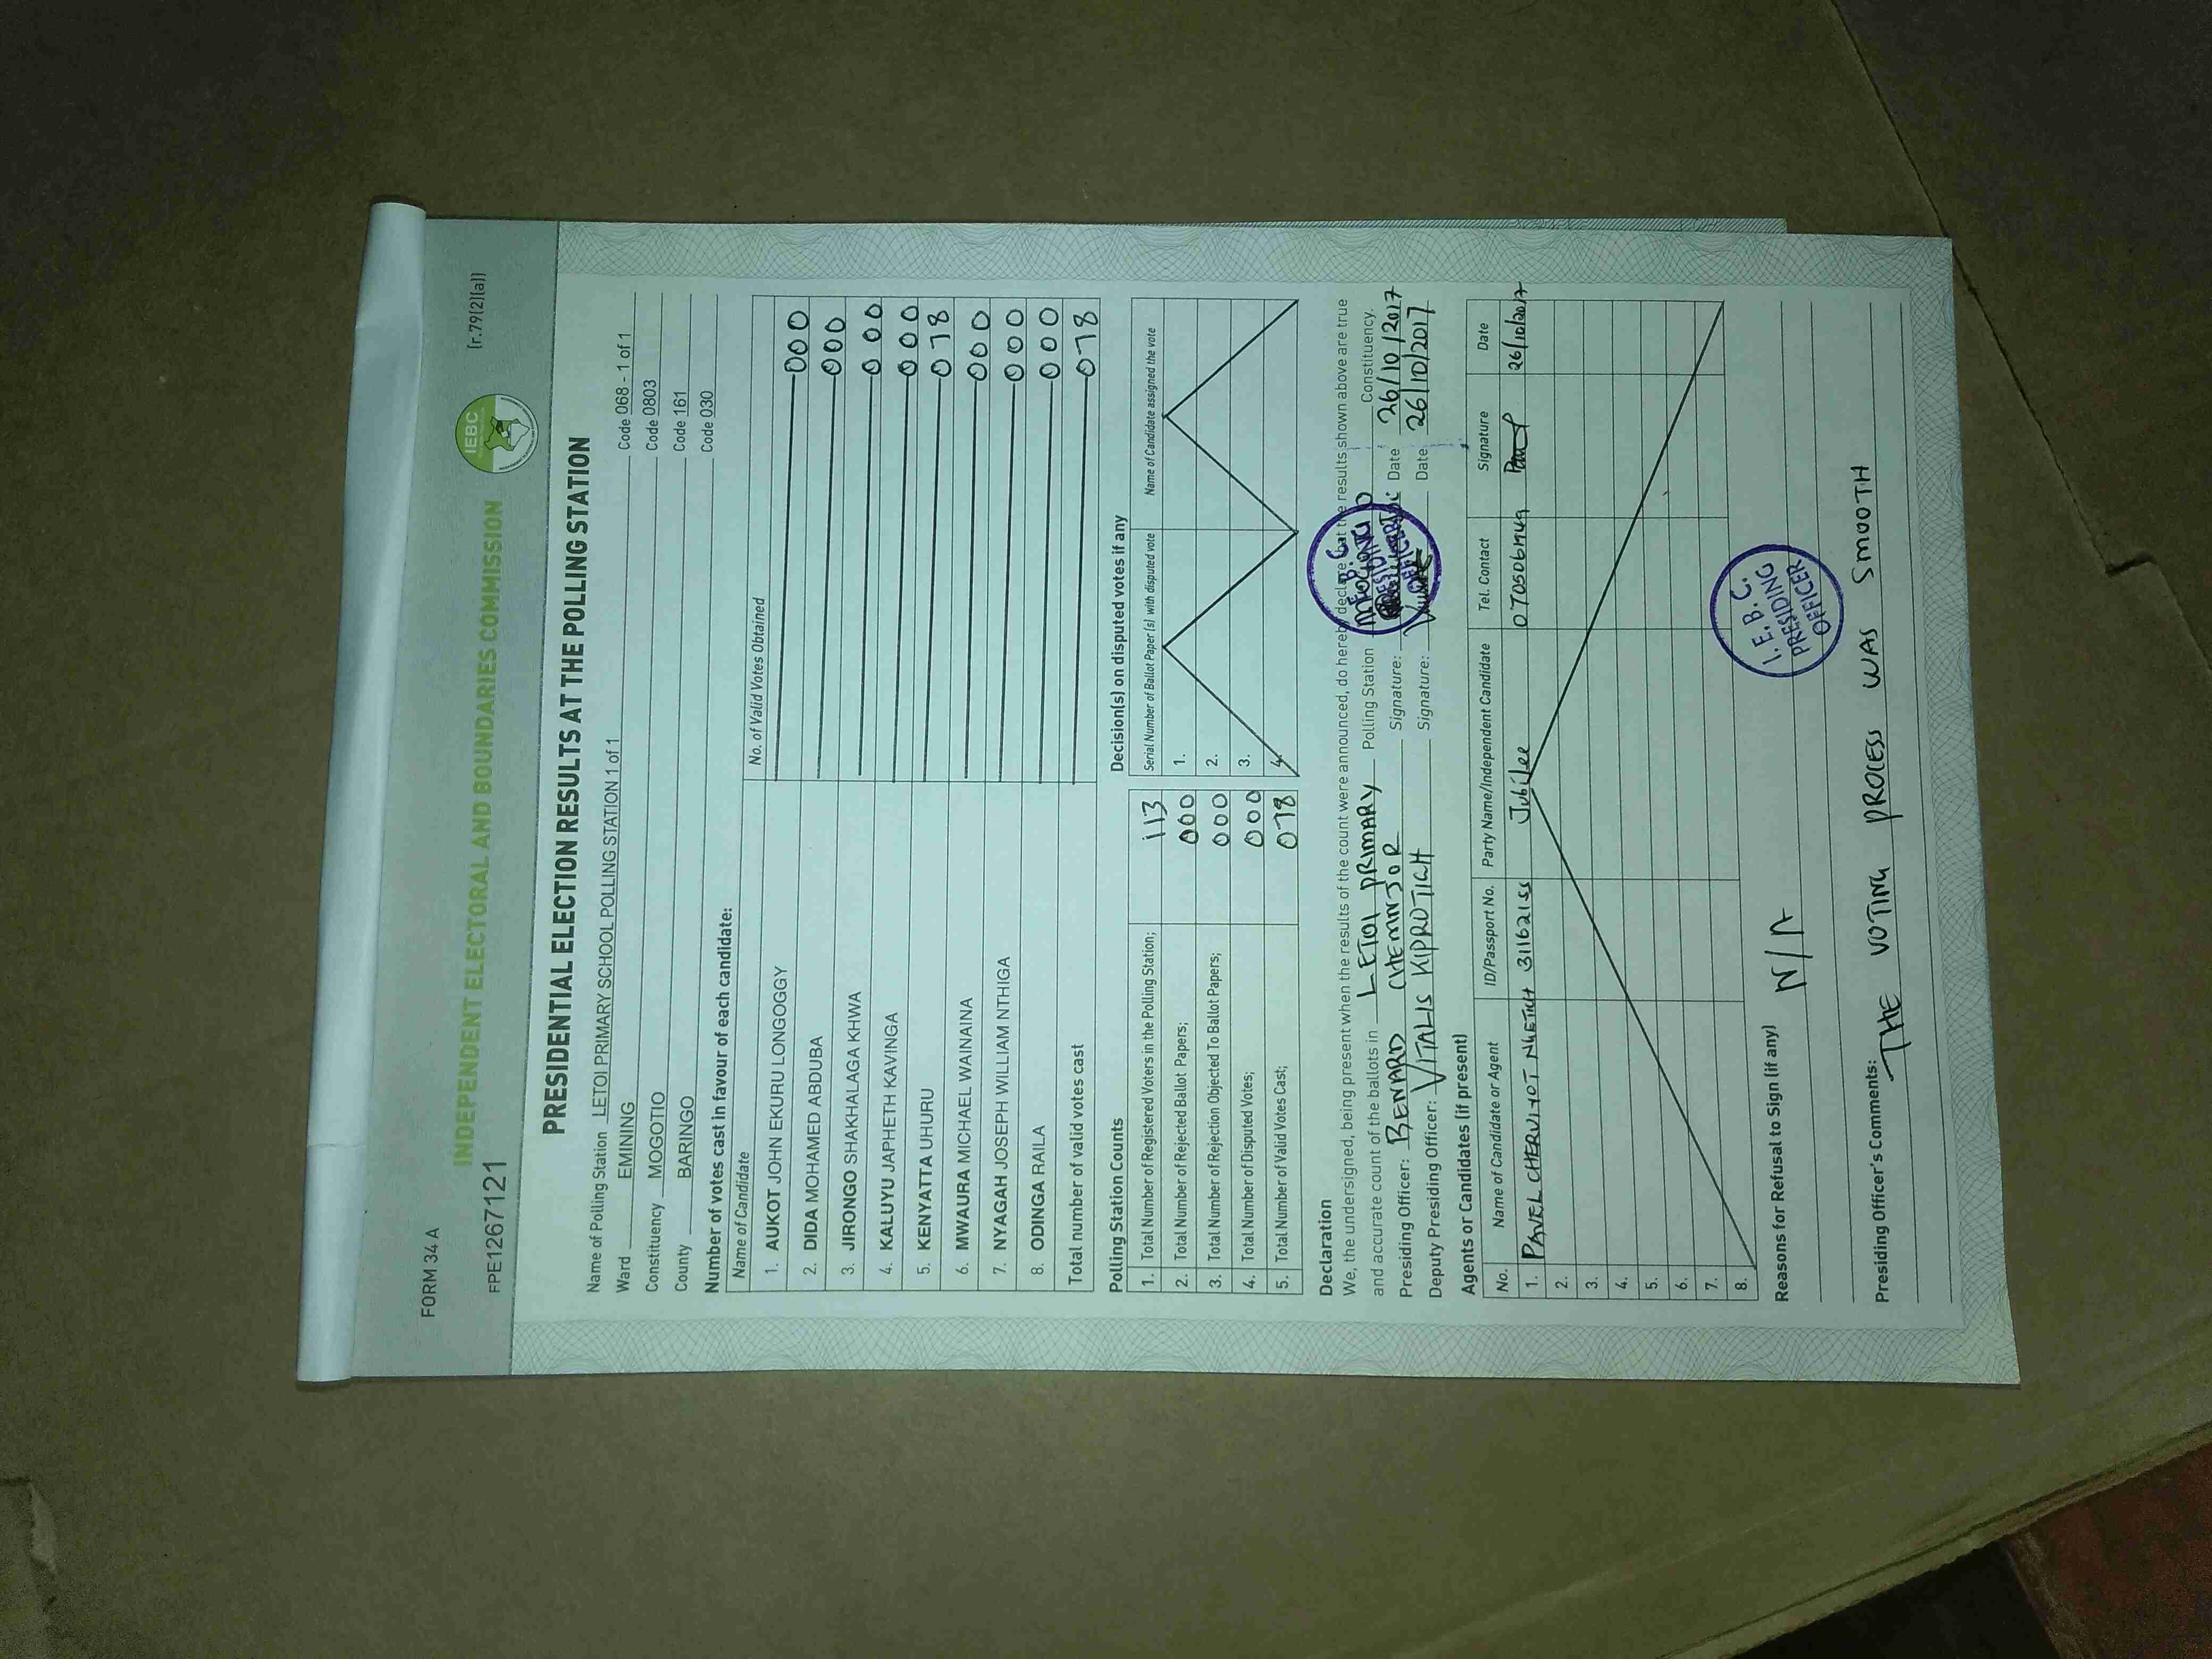 FORM 34 A
[r.79(2)(a)]
IEBC
INDEPENDENT ELECTORAL AND BOUNDARIES COMMISSION
FPE1267121
PRESIDENTIAL ELECTION RESULTS AT THE POLLING STATION
Name of Polling Station LETOI PRIMARY SCHOOL POLLING STATION 1 of 1 Code 068 - 1 of 1
Ward EMINING Code 0803
Constituency MOGOTIO Code 161
County BARINGO Code 030
Number of votes cast in favour of each candidate:
Name of Candidate No. of Valid Votes Obtained
1. AUKOT JOHN EKURU LONGOGGY 000
2. DIDA MOHAMED ABDUBA 000
3. JIRONGO SHAKHALAGA KHWA 000
4. KALUYU JAPHETH KAVINGA 000
5. KENYATTA UHURU 078
6. MWAURA MICHAEL WAINAINA 000
7. NYAGAH JOSEPH WILLIAM NTHIGA 000
8. ODINGA RAILA 000
Total number of valid votes cast 078
Polling Station Counts
1. Total Number of Registered Voters in the Polling Station; 113
2. Total Number of Rejected Ballot Papers; 000
3. Total Number of Rejection Objected To Ballot Papers; 000
4. Total Number of Disputed Votes; 000
5. Total Number of Valid Votes Cast; 078
Decision(s) on disputed votes if any
Serial Number of Ballot Paper(s) with disputed vote Name of Candidate assigned the vote
1.
2.
3.
4.
Declaration
We, the undersigned, being present when the results of the count were announced, do hereby declare that the results shown above are true
and accurate count of the ballots in LETOI PRIMARY Polling Station Constituency.
Presiding Officer: BENARD CHEMNJOR Signature: Date 26/10/2017
Deputy Presiding Officer: VITALIS KIPROTICH Signature: Date 26/10/2017
I.E.B.C.
PRESIDING
OFFICER
Agents or Candidates (if present)
No. Name of Candidate or Agent ID/Passport No. Party Name/Independent Candidate Tel. Contact Signature Date
1. CHERUIYOT 31162155 Jubilee 26/10/2017
2.
3.
4.
5.
6.
7.
8.
Reasons for Refusal to Sign (if any)
N/A
I.E.B.C.
PRESIDING
OFFICER
Presiding Officer's Comments:
THE VOTING PROCESS WAS SMOOTH